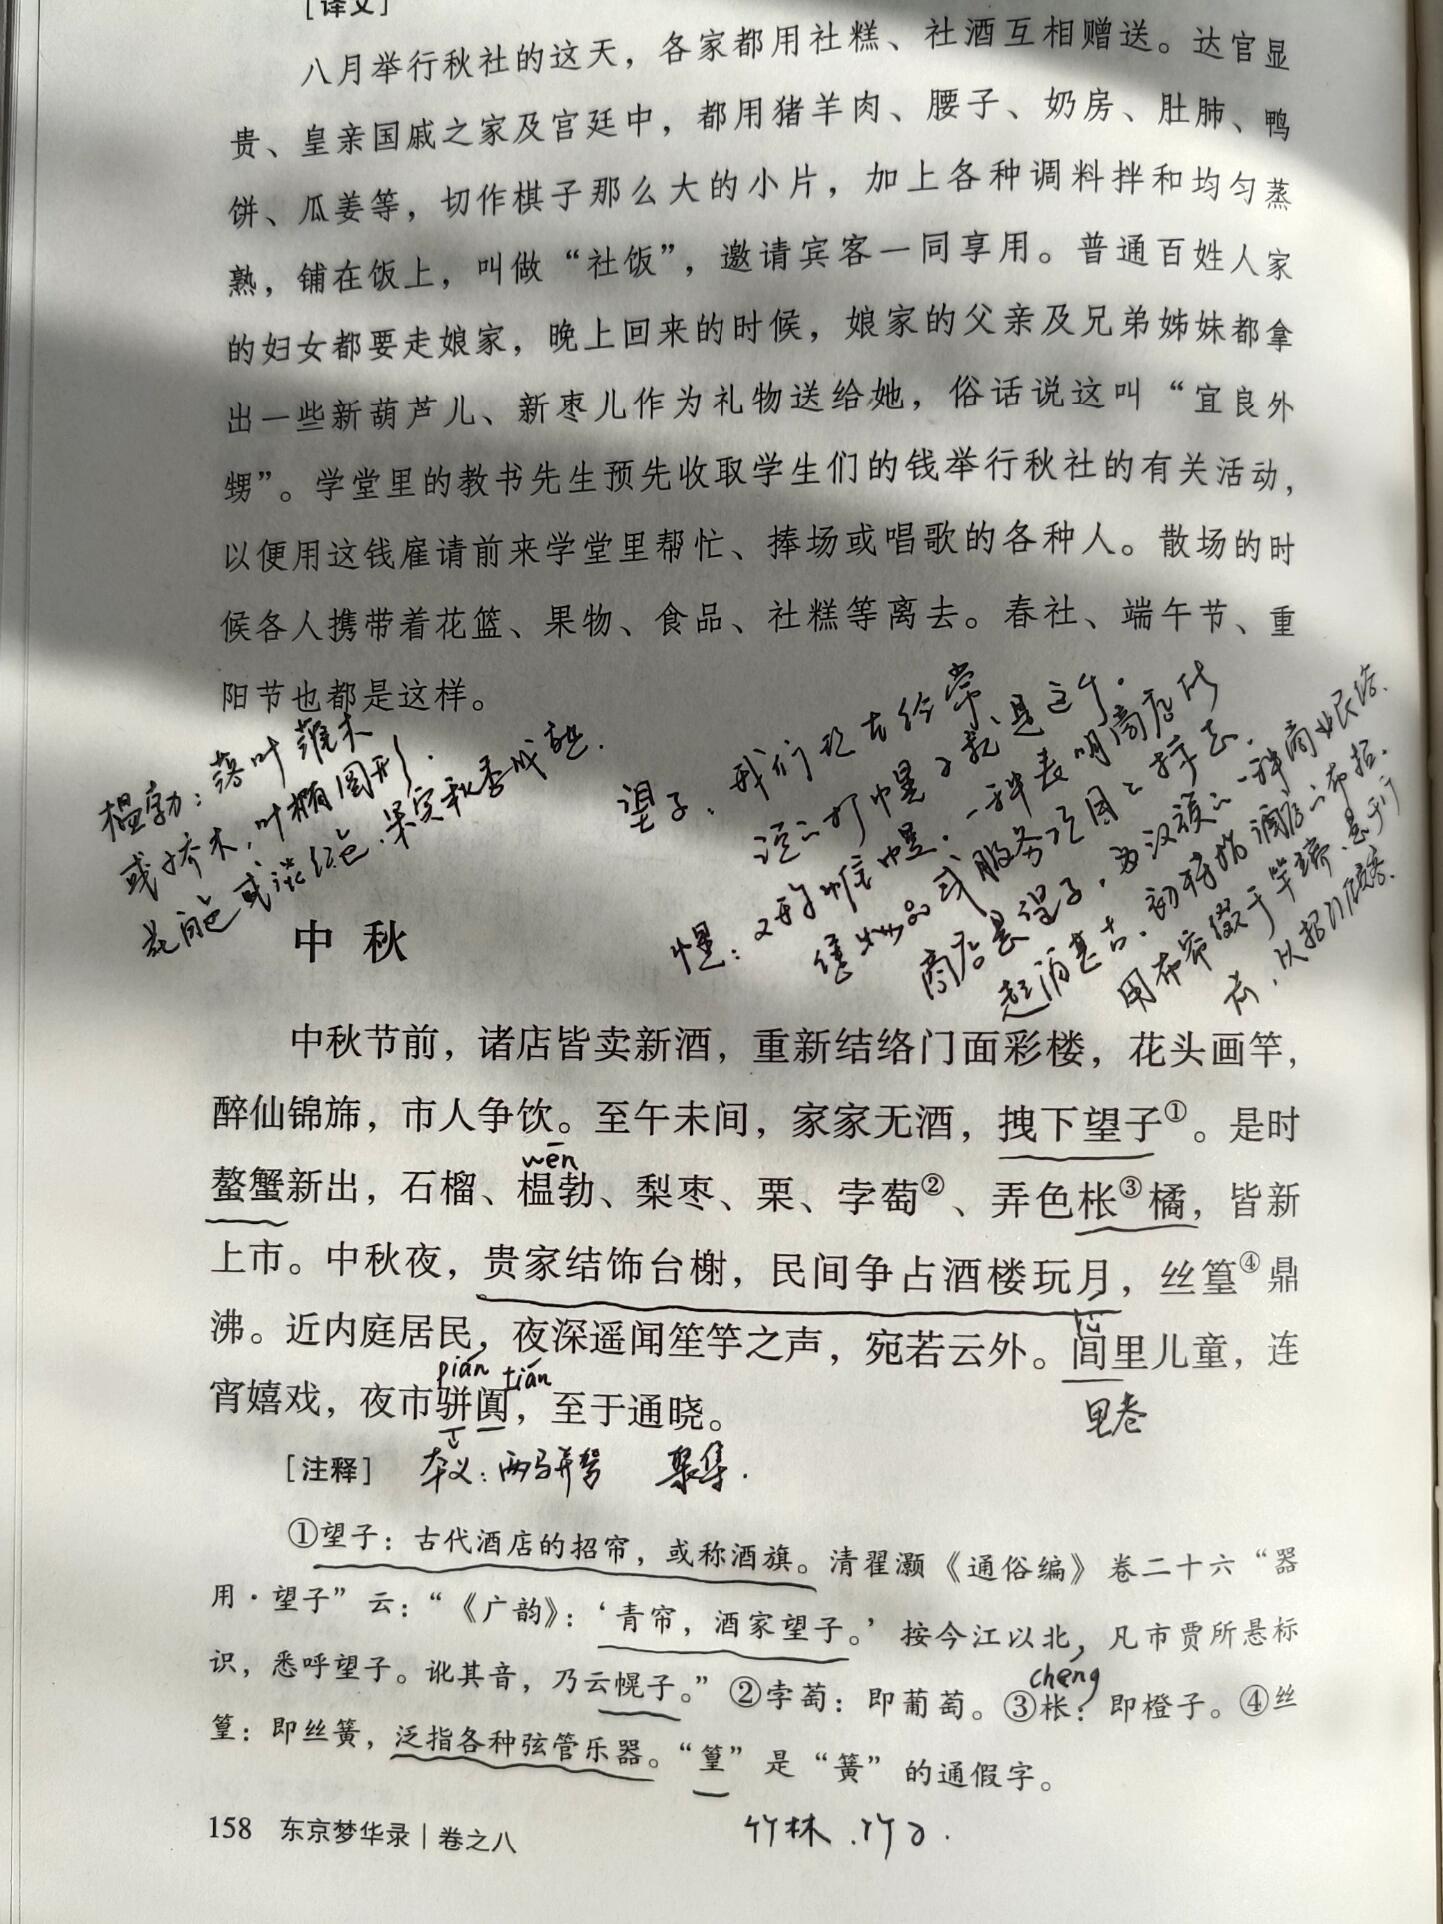 [译文]
八月举行秋社的这天，各家都用社糕、社酒互相赠送。达官显
贵、皇亲国戚之家及宫廷中，都用猪羊肉、腰子、奶房、肚肺、鸭
饼、瓜姜等，切作棋子那么大的小片，加上各种调料拌和均匀蒸
熟，铺在饭上，叫做“社饭”，邀请宾客一同享用。普通百姓人家
的妇女都要走娘家，晚上回来的时候，娘家的父亲及兄弟姊妹都拿
出一些新葫芦儿、新枣儿作为礼物送给她，俗话说这叫“宜良外
甥”。学堂里的教书先生预先收取学生们的钱举行秋社的有关活动，
以便用这钱雇请前来学堂里帮忙、捧场或唱歌的各种人。散场的时
候各人携带着花篮、果物、食品、社糕等离去。春社、端午节、重
阳节也都是这样。
榅勃：落叶灌木
或乔木，叶椭圆形．
花白色或淡红色．果实秋季成熟．
望子：我们现在经常
说的打幌子就是这个．
幌：又称帷幔．一种表明商店所
售物品或服务项目的标志．
商店悬望子，为汉族的一种商业民俗．
起源甚古．初特指酒店的布招．
用布帘缀于竿端．悬于门
前，以招引顾客．
中秋
中秋节前，诸店皆卖新酒，重新结络门面彩楼，花头画竿，
醉仙锦旆，市人争饮。至午未间，家家无酒，拽下望子①。是时
wēn
螯蟹新出，石榴、榅勃、梨枣、栗、孛萄②、弄色枨③橘，皆新
上市。中秋夜，贵家结饰台榭，民间争占酒楼玩月，丝篁④鼎
沸。近内庭居民，夜深遥闻笙竽之声，宛若云外。闾里儿童，连
pián tián
宵嬉戏，夜市骈阗，至于通晓。
里巷
[注释] 本义：两马并驾 聚集．
①望子：古代酒店的招帘，或称酒旗。清翟灏《通俗编》卷二十六“器
用·望子”云：“《广韵》：‘青帘，酒家望子。’按今江以北，凡市贾所悬标
识，悉呼望子。讹其音，乃云幌子。”②孛萄：即葡萄。③枨：即橙子。④丝
chéng
篁：即丝簧，泛指各种弦管乐器。“篁”是“簧”的通假字。
158 东京梦华录|卷之八
竹林．竹子．